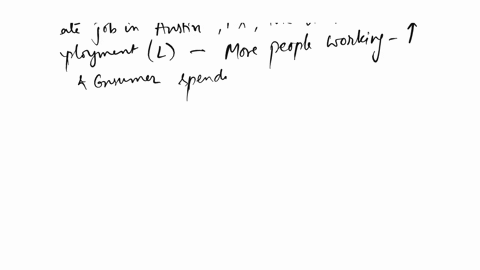 ate job in Austin, TX,
ployment (L) — More people working – ↑
& Consumer spende